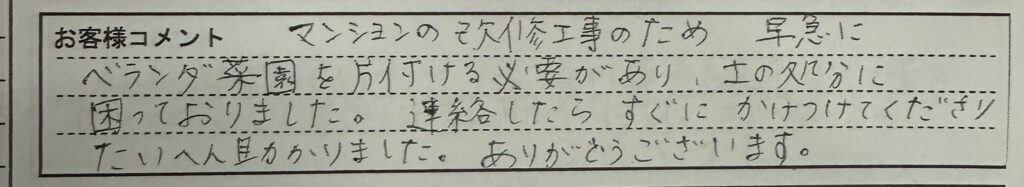 お客様コメント マンションの改修工事のため 早急に
ベランダ菜園を片付ける必要があり、土の処分に
困っておりました。 連絡したら すぐに かけつけてくださり
たいへん助かりました。 ありがとうございます。